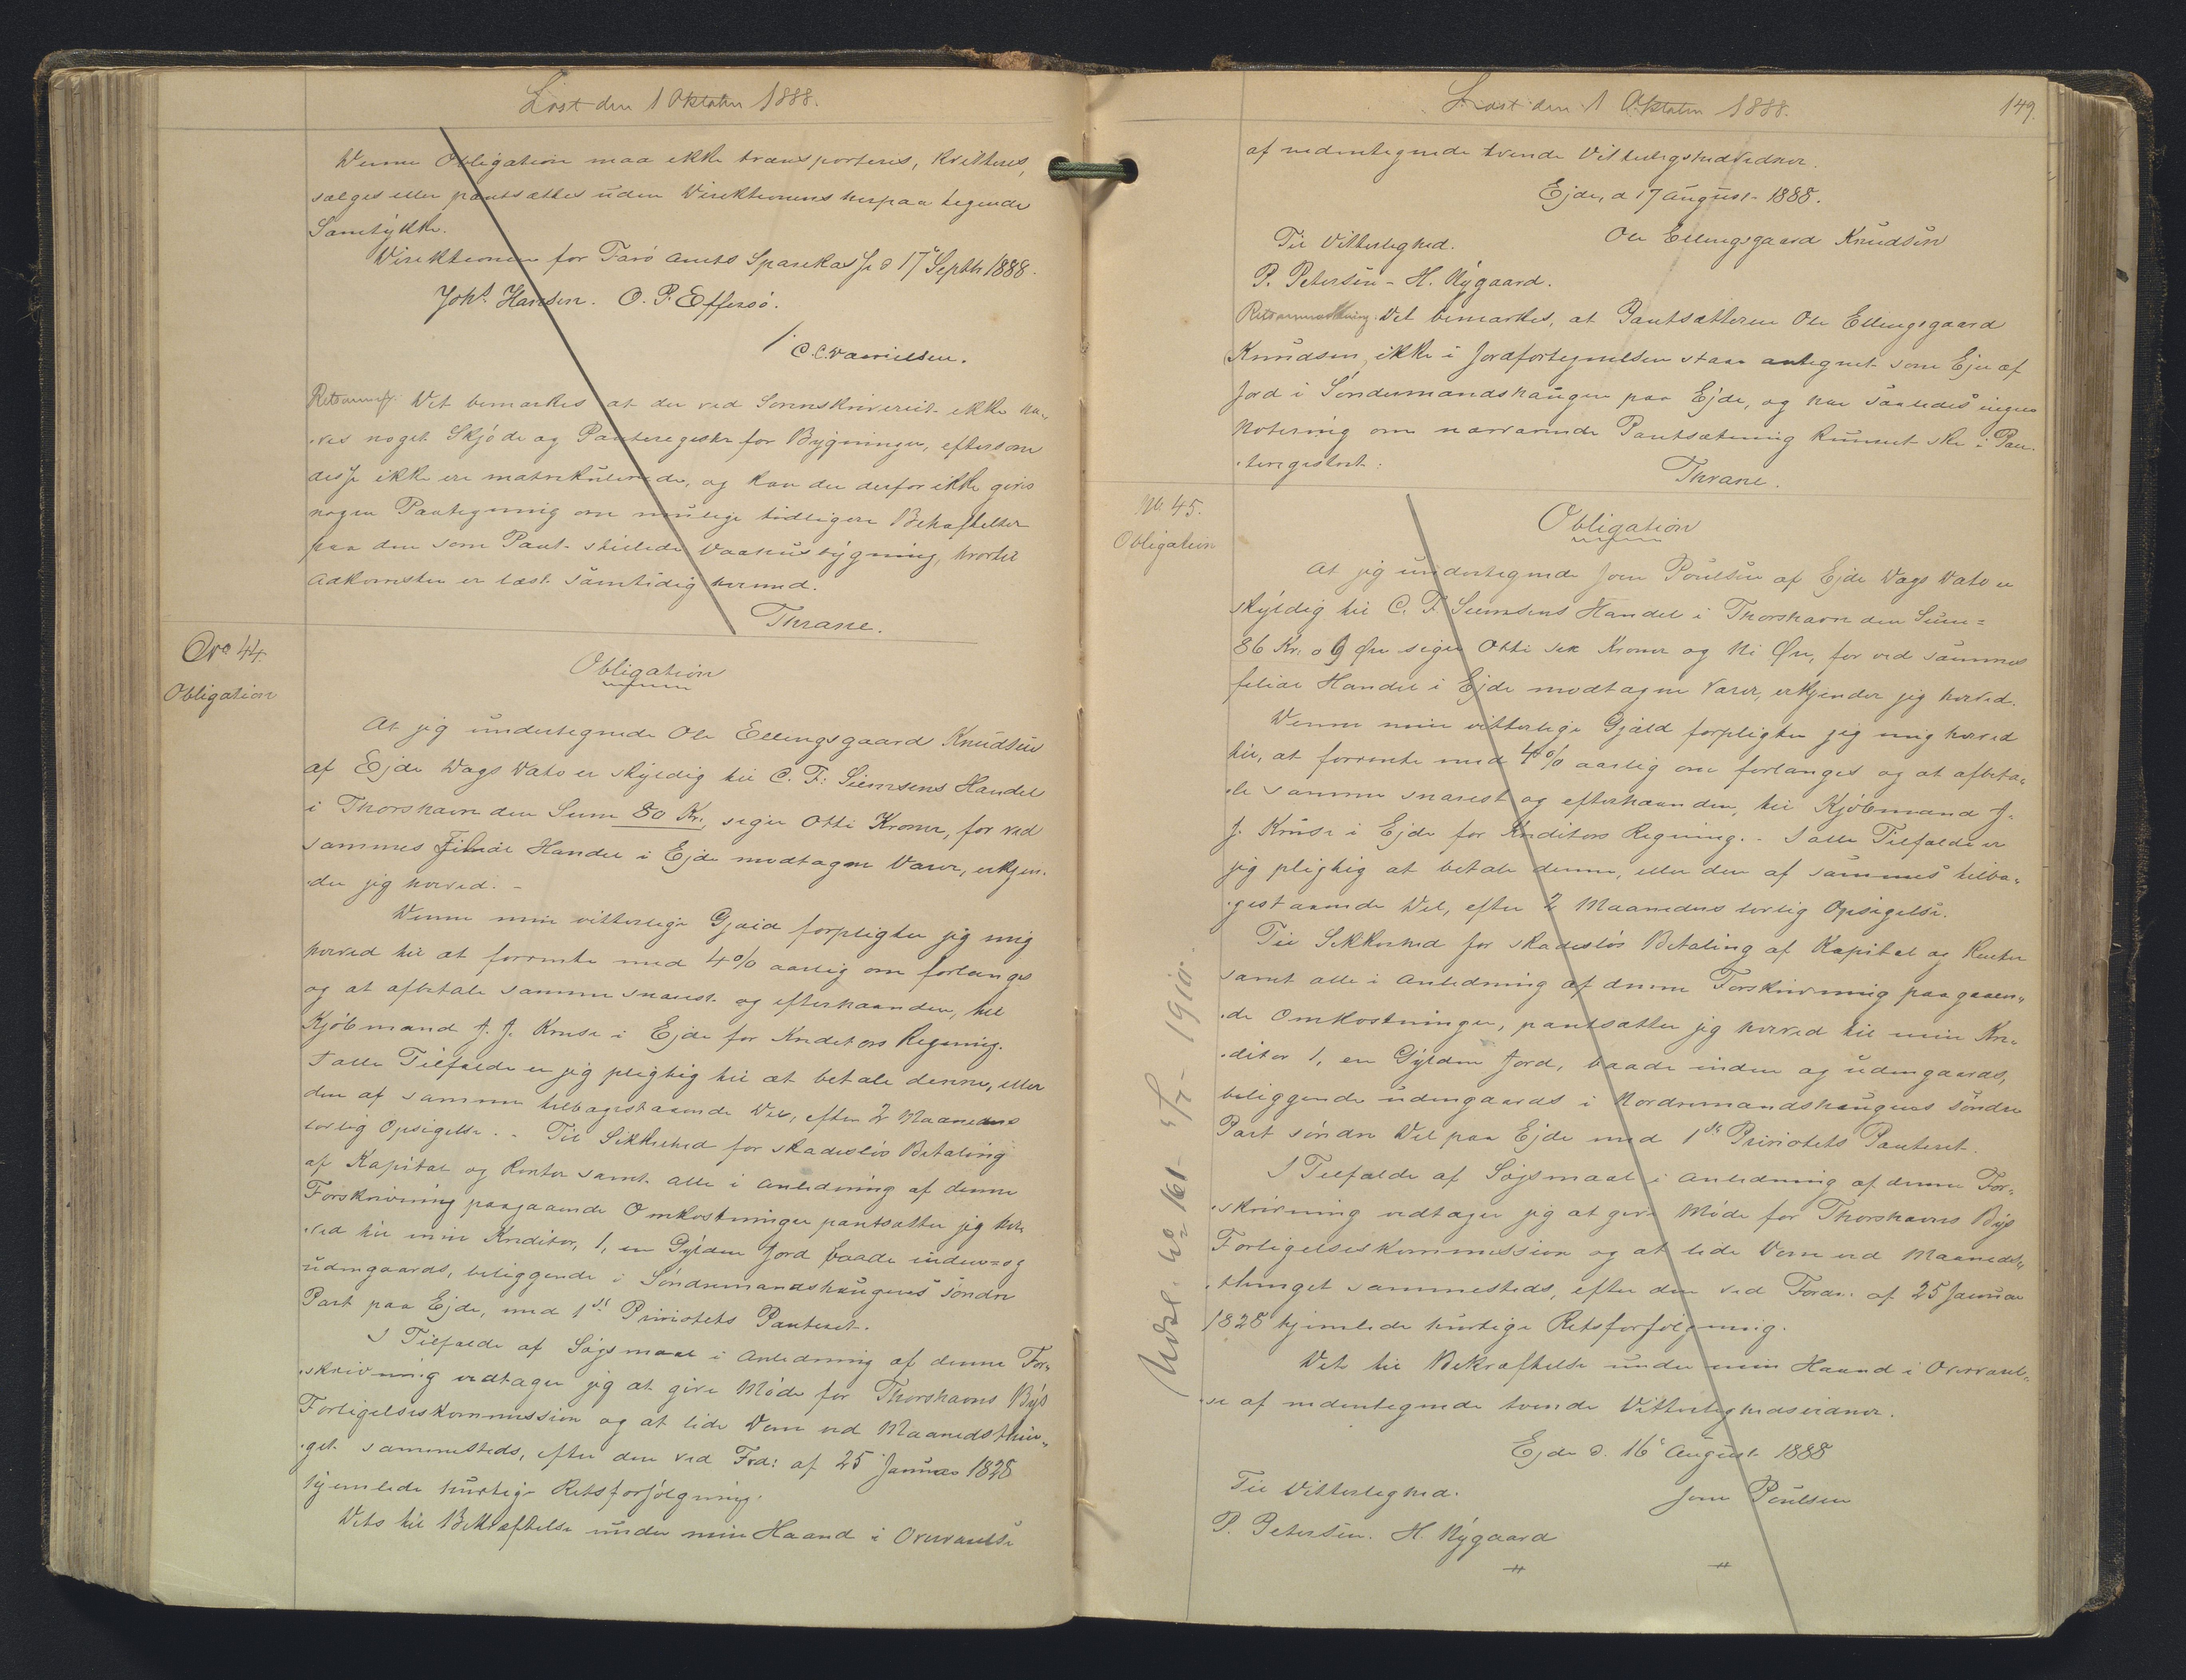 Læst den 1 Oktober 1888.
Denne Obligation maa ikke transporteres, kvitteres,
sælges eller pantsættes uden Direktionens herpaa tegnede
Samtykke.
Direktionen for Færø Amts Sparekasse d 17 Septbr 1888.
Johs. Hansen. O. P. Effersö.
/ C. C. Danielsen.
Retsanm. Det bemærkes at der ved Sorenskriveriet ikke ha-
ves noget Skjöde og Panteregister for Bygninger, eftersom
disse ikke ere matrikulerede, og kan der derfor ikke gives
nogen Paategning om mulige tidligere Behæftelser
paa den som Pant stillede Vaanusbygning, hvortil
Adkomsten er læst samtidig hermed.
Thrane.
No 44
Obligation
Obligation
At jeg undertegnede Ole Ellingsgaard Knudsen
af Ejde Dags Dato er skyldig til C. F. Siemsens Handel
i Thorshavn den Sum 80 Kr., siger Otti Kroner, for ved
sammes Filiale Handel i Ejde modtagne Varer, erkjen-
der jeg herved. -
Denne min vitterlige Gjæld forpligter jeg mig
herved til at forrente med 4% aarlig om forlanges
og at afbetale samme snarest og efterhaanden, til
Kjöbmand J. J. Kruse i Ejde for Kreditors Regning.
I alle Tilfælde er jeg pligtig til at betale denne, eller
den af samme tilbagestaaende Del, efter 2 Maaneders
lovlig Opsigelse. - Til Sikkerhed for skadeslös Betaling
af Kapital og Renter samt alle i Anledning af denne
Forskrivning paagaaende Omkostninger pantsætter jeg her-
ved til min Kreditor, 1, en Gylden Jord baade inden- og
udengaards, beliggende i Söndremandshaugens söndre
Part paa Ejde, med 1ste Prioritets Panteret.
I Tilfælde af Sögsmaal i Anledning af denne For-
skrivning vedtager jeg at give Möde for Thorshavns Bys
Forligelseskommission og at lide Dom ved Maanedsthin-
get sammesteds, efter den ved Frd: af 25 Januar 1828
hjemlede hurtige Retsforfölgning.
Dets til Bekræftelse under min Haand i Overværelse
Læst den 1 Oktober 1888.
149.
af nedentegnede tvende Vitterlighedsvidner.
Ejde, d 17 August 1888.
Til Vitterlighed.
Ole Ellingsgaard Knudsen
P. Petersen - H. Nygaard.
Retsanmærkning: Det bemærkes, at Pantsætteren Ole Ellingsgaard
Knudsen, ikke i Jordfortegnelsen staar antegnet som Ejer af
Jord i Söndremandshaugen paa Ejde, og har saaledes ingen
Notering om nærværende Pantsætning kunnet ske i Pan-
teregistret.
Thrane.
No. 45.
Obligation
Obligation
At jeg undertegnede Joen Poulsen af Ejde Dags Dato er
skyldig til C. F. Siemsens Handel i Thorshavn den Sum =
86 Kr. o 9 Øre siger Otti sex Kroner og Ni Øre, for ved sammes
filial Handel i Ejde modtagne Varer, erkjender jeg herved.
Denne min vitterlige Gjæld forpligter jeg mig herved
til, at forrente med 4% aarlig om forlanges og at afbeta-
le samme snarest og efterhaanden, til Kjöbmand J.
J. Kruse i Ejde for Kreditors Regning. - I alle Tilfælde er
jeg pligtig at betale denne, eller den af sammes tilba-
gestaaende Del, efter 2 Maaneders lovlig Opsigelse.
Til Sikkerhed for skadeslös Betaling af Kapital og Renter
samt alle i Anledning af denne Forskrivning paagaaen-
de Omkostninger, pantsætter jeg herved til min Kre-
ditor 1, en Gylden Jord, baade inden og udengaards,
beliggende udengaards i Nordremandshaugens söndre
Part söndre Del paa Ejde med 1ste Prioritets Panteret.
I Tilfælde af Sögsmaal i Anledning af denne For-
skrivning vedtager jeg at give Möde for Thorshavns Bys
Forligelseskommission og at lide Dom ved Maaneds-
thinget sammesteds, efter den ved Fordn. af 25 Januar
1828 hjemlede hurtige Retsforfölgning.
Dets til Bekræftelse under min Haand i Overværel-
se af nedentegnede tvende Vitterlighedsvidner.
Ejde d. 16 August 1888
Til Vitterlighed.
Joen Poulsen
P. Petersen. H. Nygaard
Udsl. No 161 - 5/7 - 1910.